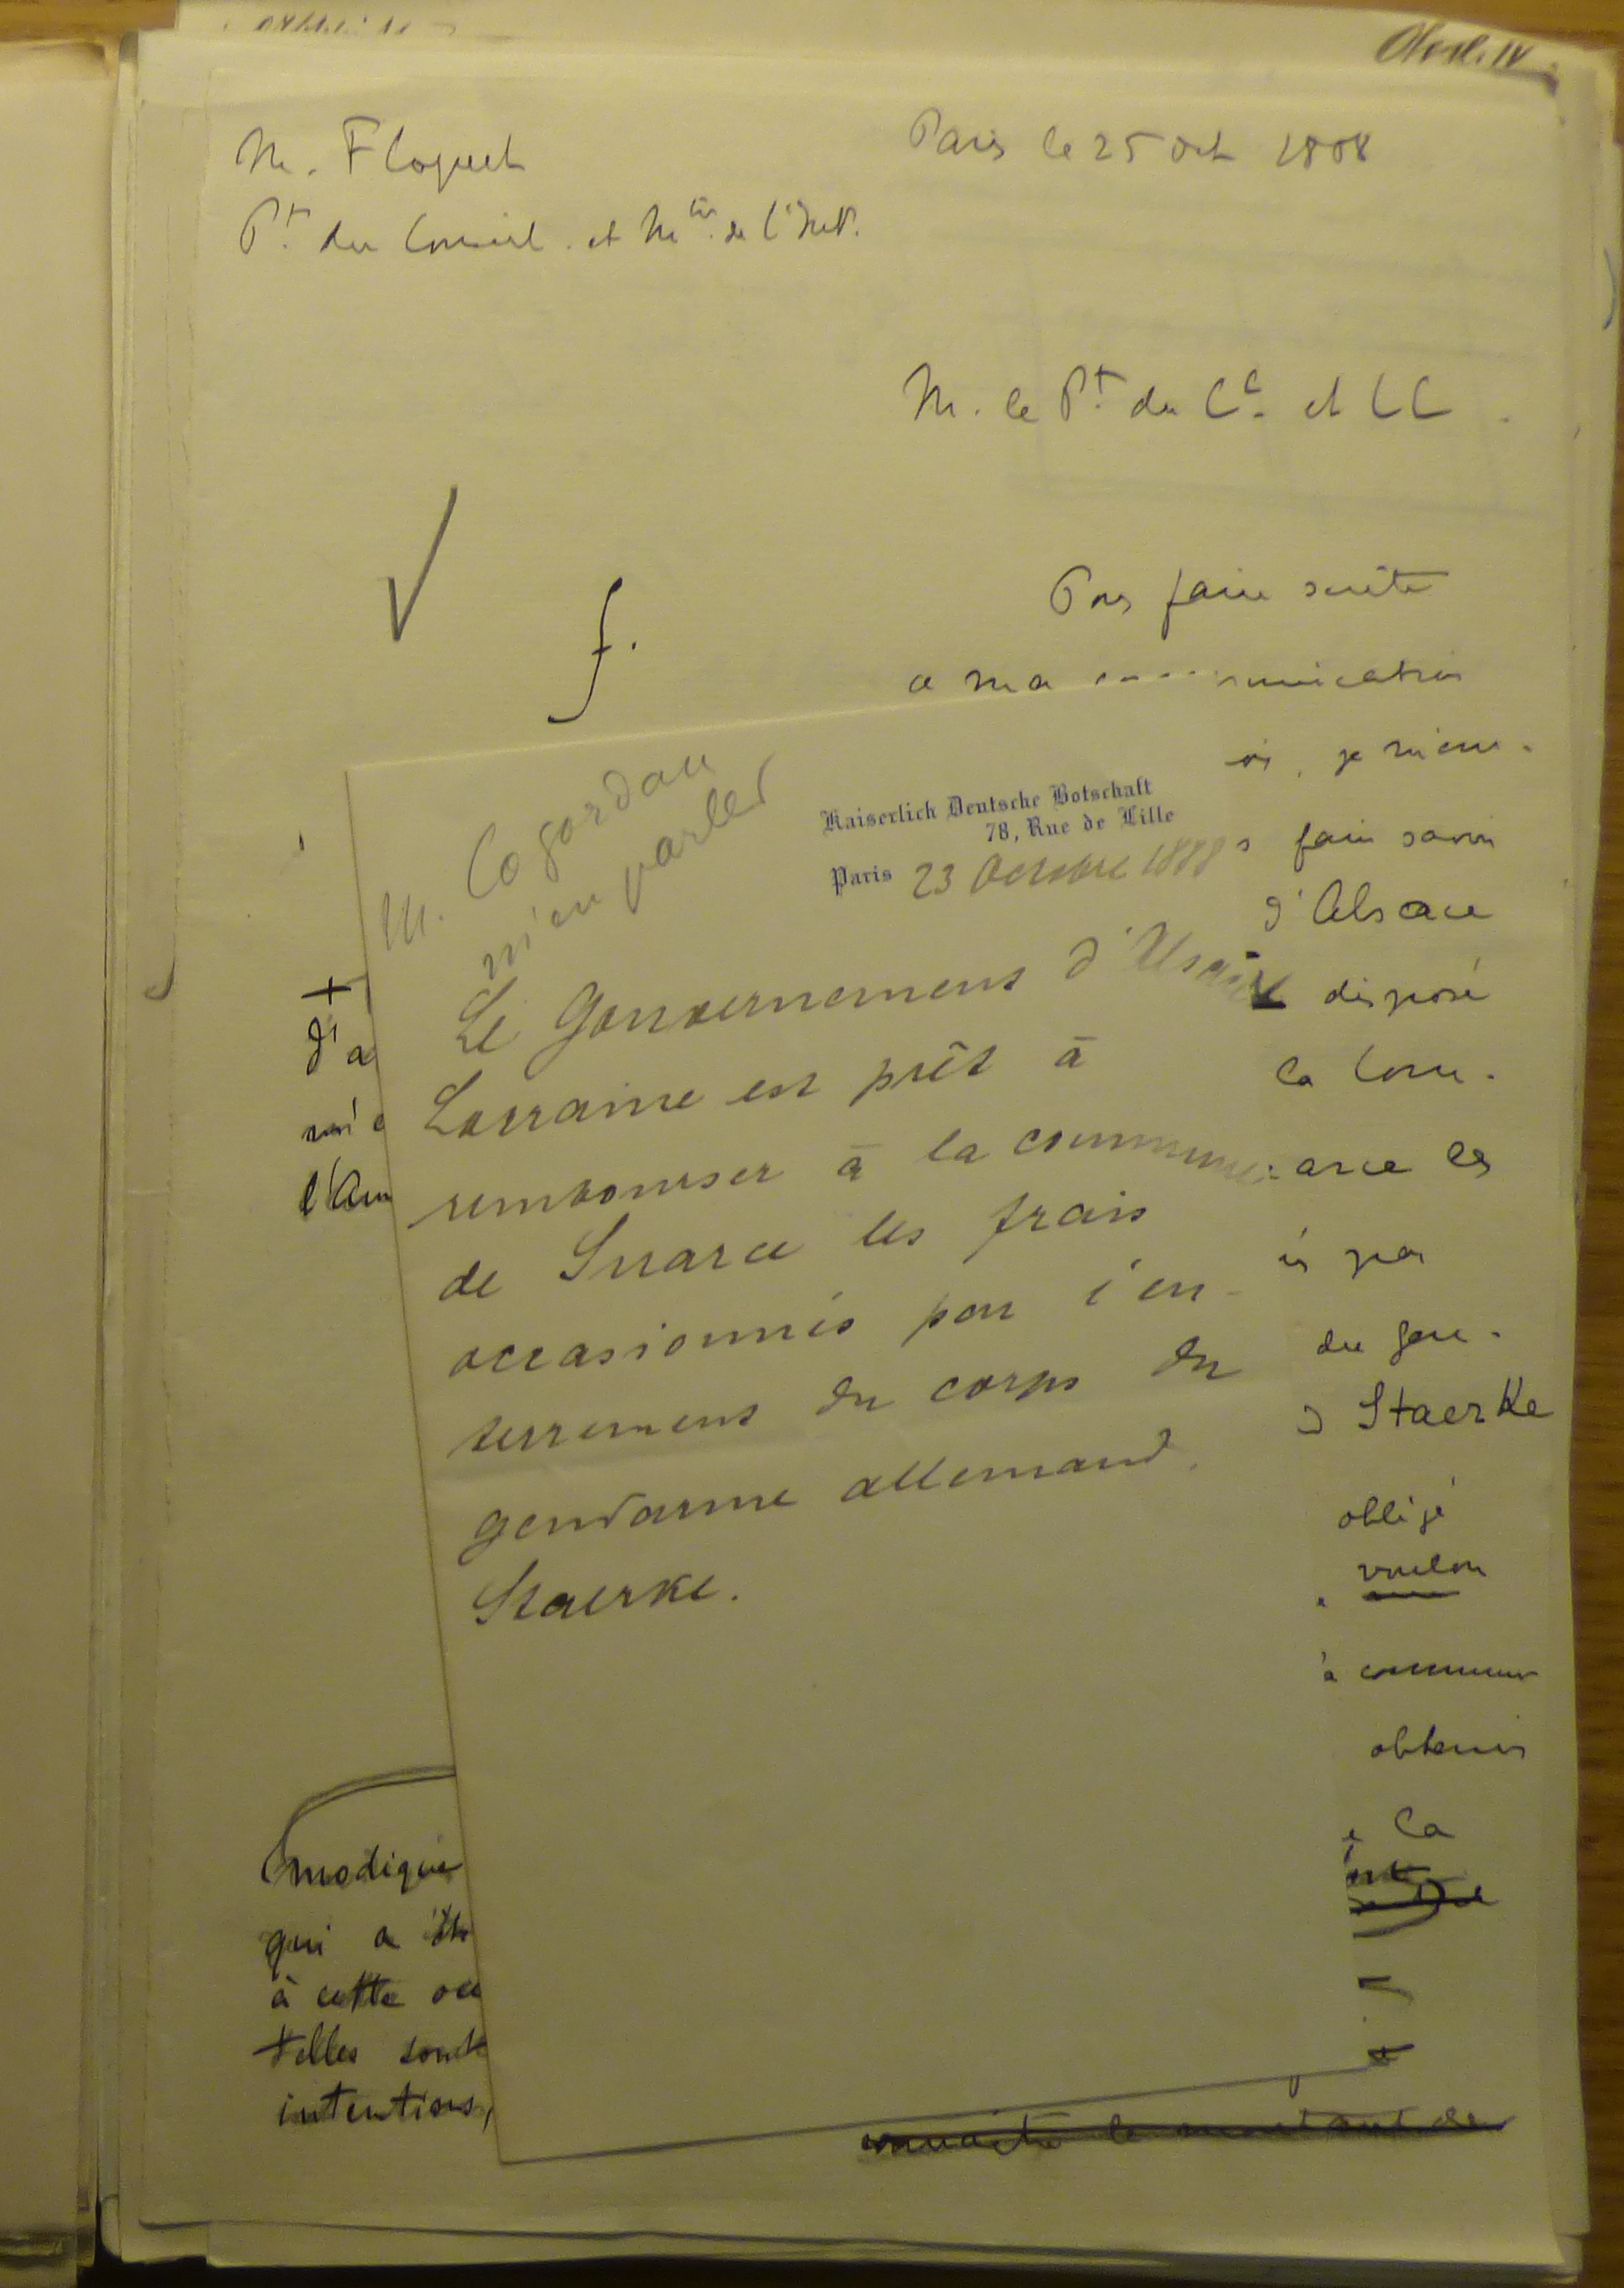 M. Floquet
Pt. du Conseil. et Mtre. de l'Int.
Paris le 25 Oct 1888
M. le Pt. du Cl. et CC
Pour faire suite
a ma munication
je m'em-
faire savoir
d'Alsace
disposé
la Com-
arce les
és par
du gen-
Staerke
obligé
vouloir
commune
obtenir
la
connaître le montant de
+
d'a
l'Am
modique
qui a été
à cette occ
telles sont
intentions,
M. Cogordan
m'en parler
Kaiserlich Deutsche Botschaft
78, Rue de Lille
Paris 23 Octobre 1888
Le Gouvernement d'Alsace
Lorraine est prêt à
rembourser à la commune
de Suarce les frais
occasionnés par l'en-
terrement du corps du
gendarme allemand
Staerke.